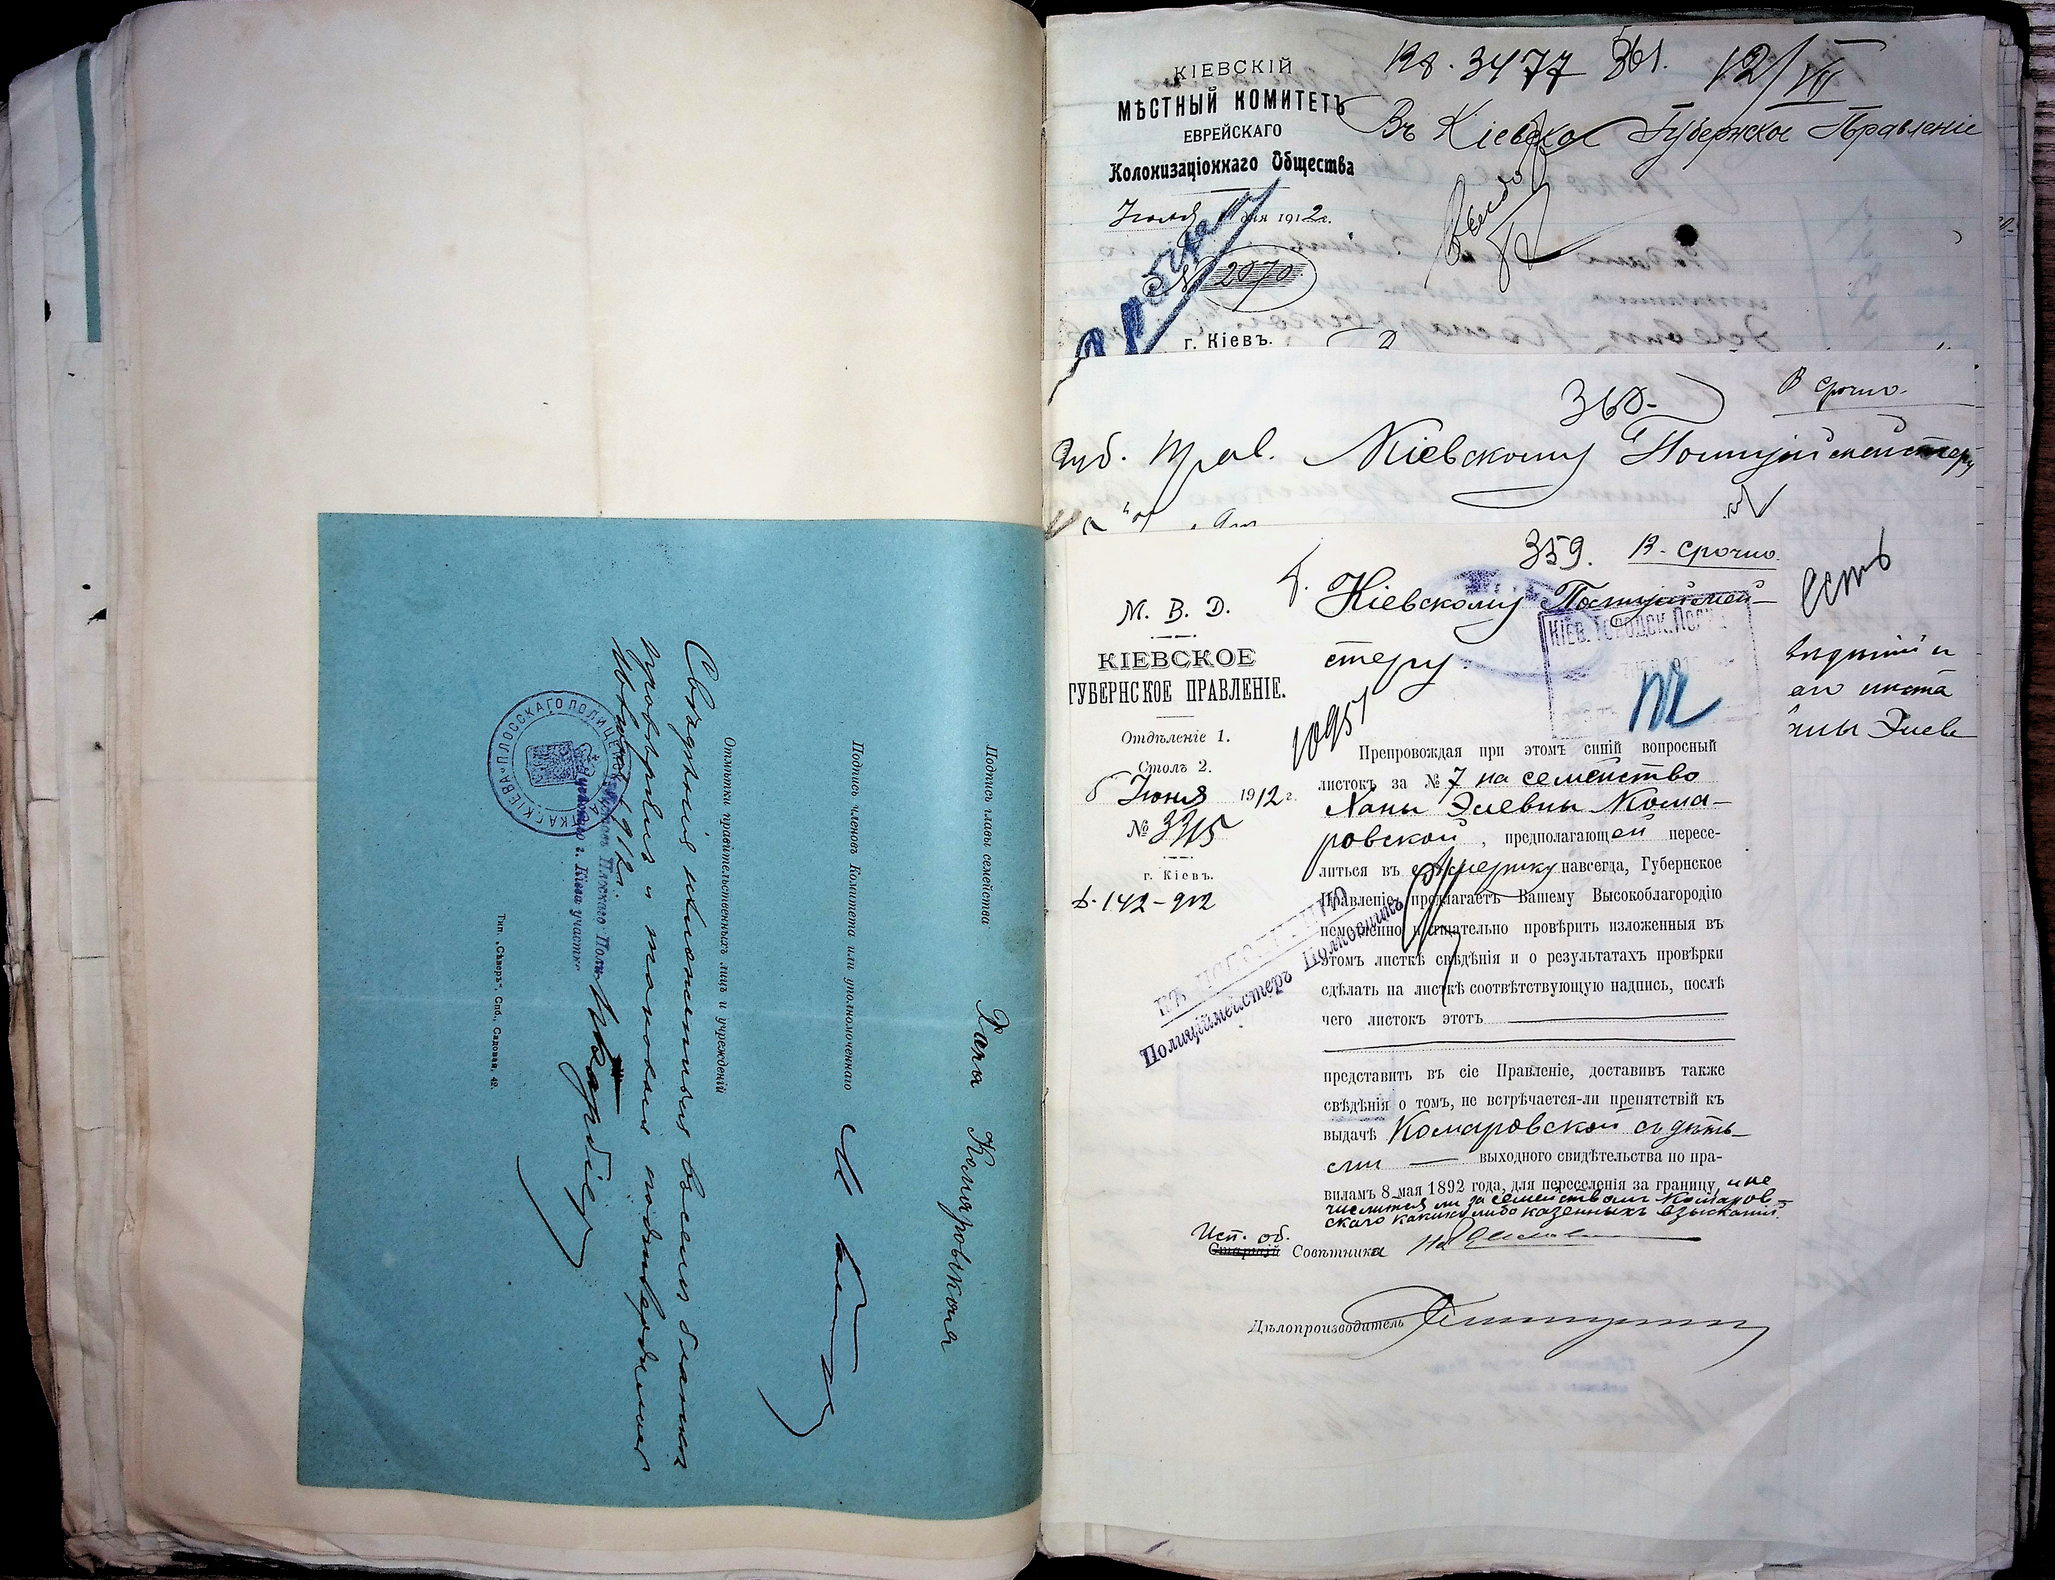 Подпись главы семейства
Хана Комаровская
Подпись членовъ Комитета или уполномоченнаго
Отмѣтки правительственныхъ лицъ и учрежденій
Свѣдѣнія изложенныя въ семъ бланкѣ
провѣрялъ и таковыя подтвердились
1912 г.
Тип. „Сѣверъ“, Спб., Садовая, 42.
КІЕВСКІЙ
МѢСТНЫЙ КОМИТЕТЪ
ЕВРЕЙСКАГО
Колонизаціоннаго Общества
Іюля дня 1912 г.
№ 2070
г. Кіевъ.
3477 361. 12/VII
Въ Кіевское Губернское Правленіе
360 В срочно
Губ. Прав. Кіевскому Полиціймейстеру
359. В. срочно
М. В. Д.
КІЕВСКОЕ
ГУБЕРНСКОЕ ПРАВЛЕНІЕ.
Отдѣленіе 1.
Столъ 2.
6 Іюня 1912 г.
№ 3315
г. Кіевъ.
142-912
Кіевскому Полиціймей-
стеру
КІЕВ. ГОРОДСК. ПОЛ
10951
Препровождая при этомъ синій вопросный
листокъ за № 7 на семейство
Ханы Элевны Кома-
ровской, предполагающей пересе-
литься въ Америку навсегда, Губернское
Правленіе предлагаетъ Вашему Высокоблагородію
немедленно и тщательно провѣрить изложенныя въ
этомъ листкѣ свѣдѣнія и о результатахъ провѣрки
сдѣлать на листкѣ соотвѣтствующую надпись, послѣ
чего листокъ этотъ
представить въ сіе Правленіе, доставивъ также
свѣдѣнія о томъ, не встрѣчается-ли препятствій къ
выдачѣ Комаровской съ дѣть-
ми выходного свидѣтельства по пра-
виламъ 8 мая 1892 года, для переселенія за границу, и не
числится ли за семействомъ Комаров-
скаго какихъ либо казенныхъ взысканій.
Исп. об.
Старшій Совѣтника
Дѣлопроизводитель
КЪ ИСПОЛНЕНІЮ
Полиціймейстеръ Полковникъ
есть